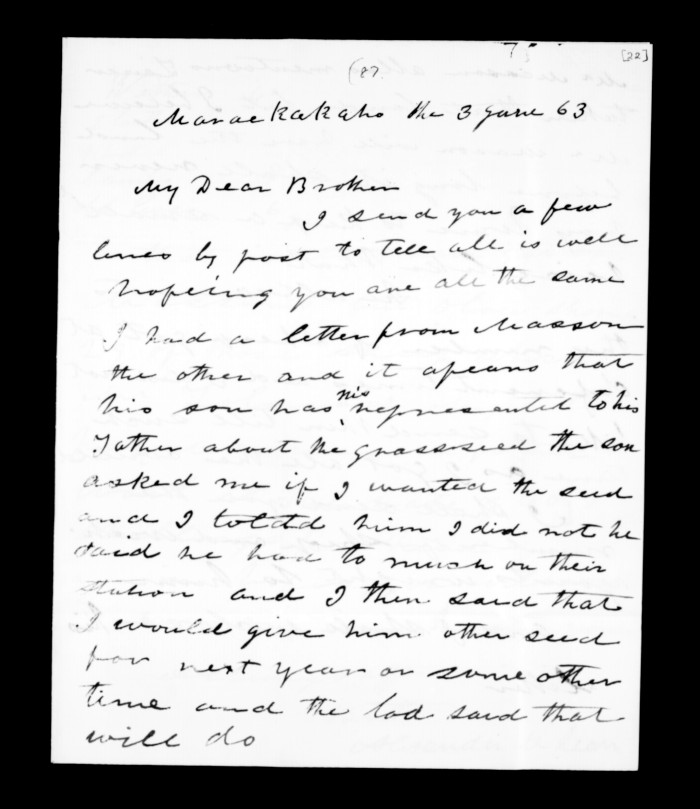 7
[22]
(87.
Maraekakaho the 3 June 63
My Dear Brother
I send you a few
lines by post to tell all is well
hopeing you are all the same
I had a letter from Masson
the other and it apears that
his son has ^mis represented to his
Father about the grassseed the son
asked me if I wanted the seed
and I toldd him I did not he
said he had to much on their
station and I then said that
I would give him other seed
for next year or some other
time and the lad said that
will do